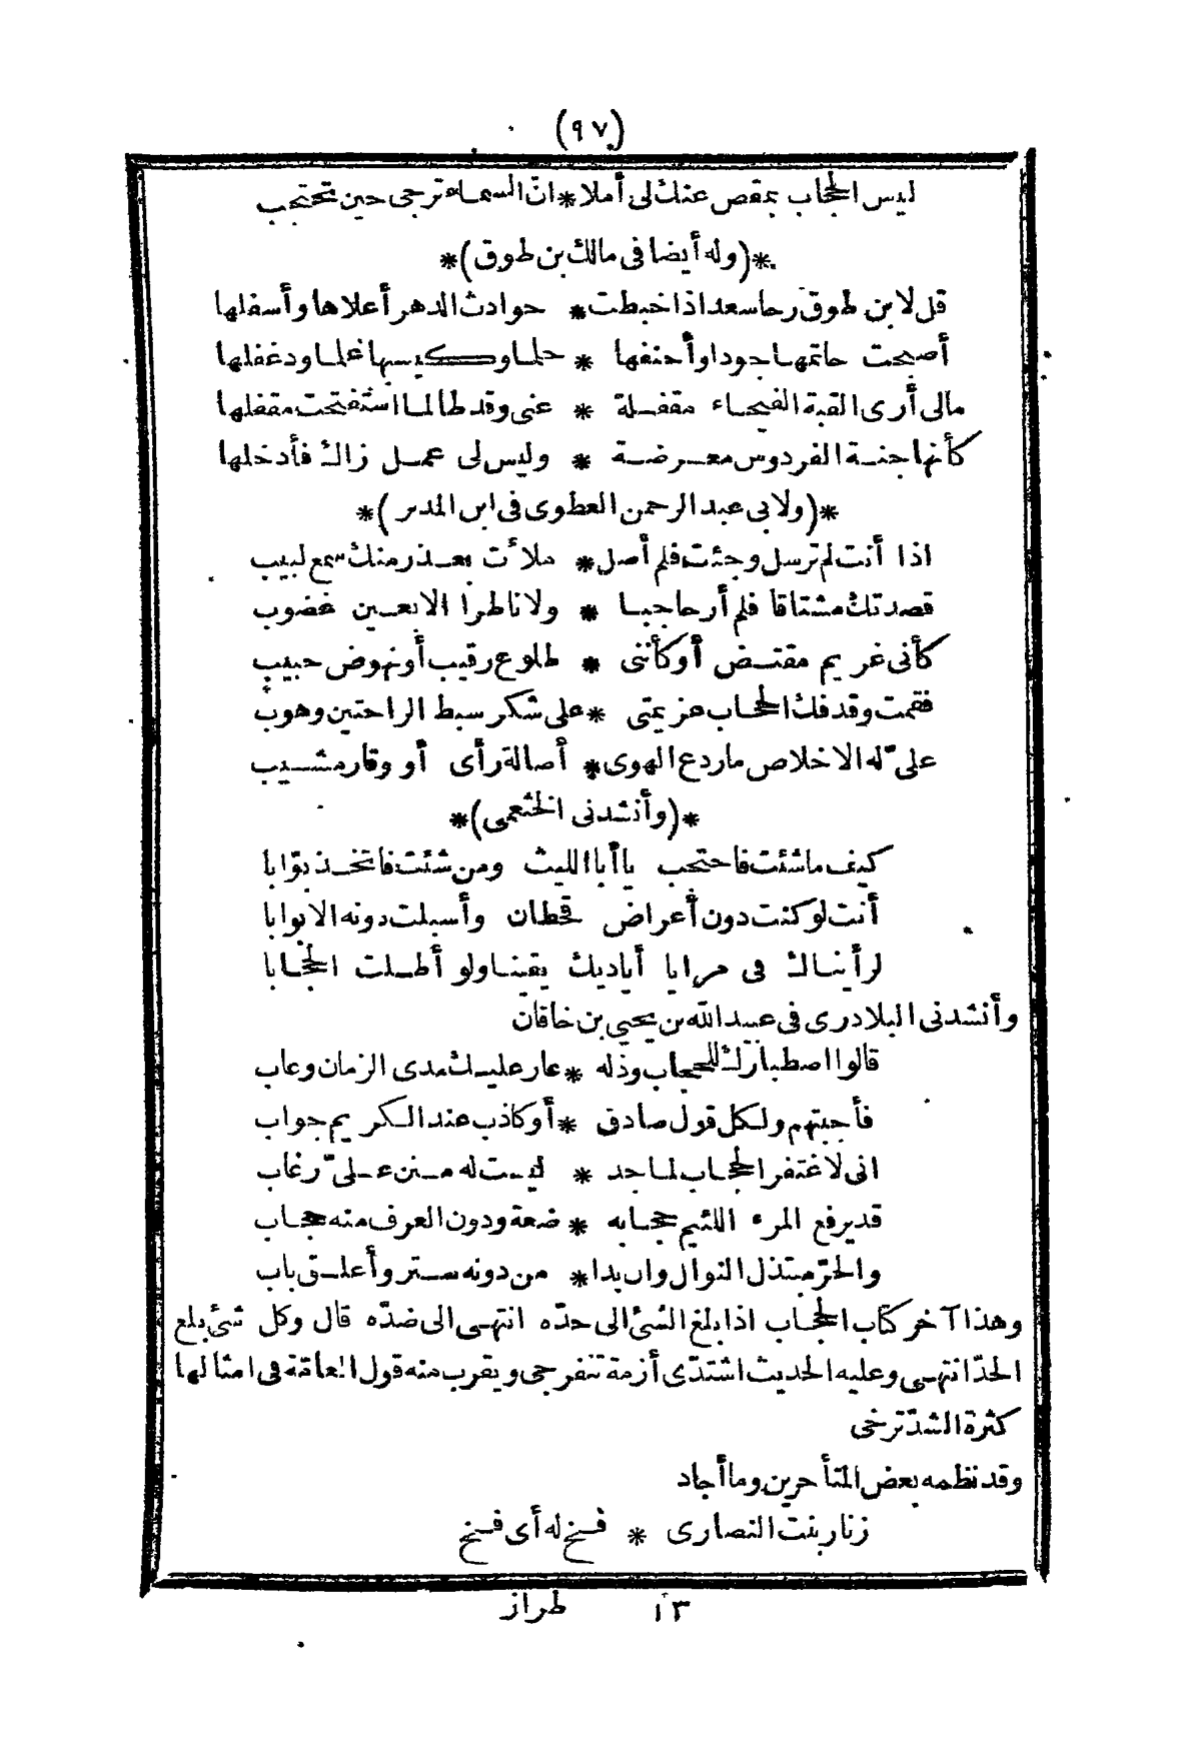 (٩٧)
ليس الحجاب بمقص عنك لى أملا * انّ السماء ترجى حين تحتجب
*(وله أيضا فى مالك بن طوق)*
قل لابن طوق رحا سعد اذا خبطت * حوادث الدهر أعلاها وأسفلها
أصبحت حاتمها جودا وأحنفها * حلما وكيسها علما ودغفلها
مالى أرى القبة الفيحاء مقفلة * عنى وقد طالما استفتحت مقفلها
كأنها جنة الفردوس معرضة * وليس لى عمل زاك فأدخلها
*(ولابى عبد الرحمن العطوى فى ابن المدبر)*
اذا أنت لم ترسل وجئت فلم أصل * ملأت بعذر منك سمع لبيب
قصدتك مشتاقا فلم أر حاجبا * ولا ناظرا الا بعين غضوب
كأنى غريم مقتض أو كأننى * طلوع رقيب أو نهوض حبيب
فقمت وقد فك الحجاب عزيمتى * على شكر سبط الراحتين وهوب
علىّ له الاخلاص ما ردع الهوى * أصالة رأى أو وقار مشيب
*(وأنشدنى الخثعمى)*
كيف ما شئت فاحتجب يا أبا الليث ومن شئت فاتخذ بوّابا
أنت لو كنت دون أعراض قحطان وأسبلت دونه الابوابا
لرأيناك فى مرايا أياديك يقينا ولو أطلت الحجابا
وأنشدنى البلادرى فى عبيد الله بن يحيى بن خاقان
قالوا اصطبارك للحجاب وذله * عار عليك مدى الزمان وعاب
فأجبتهم ولكل قول صادق * أو كاذب عند الكريم جواب
انى لاغتفر الحجاب لماجد * ليست له منن علىّ رغاب
قد يرفع المرء اللئيم حجابه * ضعة ودون العرف منه حجاب
والحرّ مبتذل النوال وان بدا * من دونه ستر وأغلق باب
وهذا آخر كتاب الحجاب اذا بلغ الشئ الى حدّه انتهى الى ضدّه قال وكل شئ بلغ
الحدّ انتهى وعليه الحديث اشتدّى أزمة تنفرجى ويقرب منه قول العامّة فى امثالها
كثرة الشدّ ترخى
وقد نظمه بعض المتأخرين وما أجاد
زنار بنت النصارى * فسخ له أى فسخ
١٣ طراز